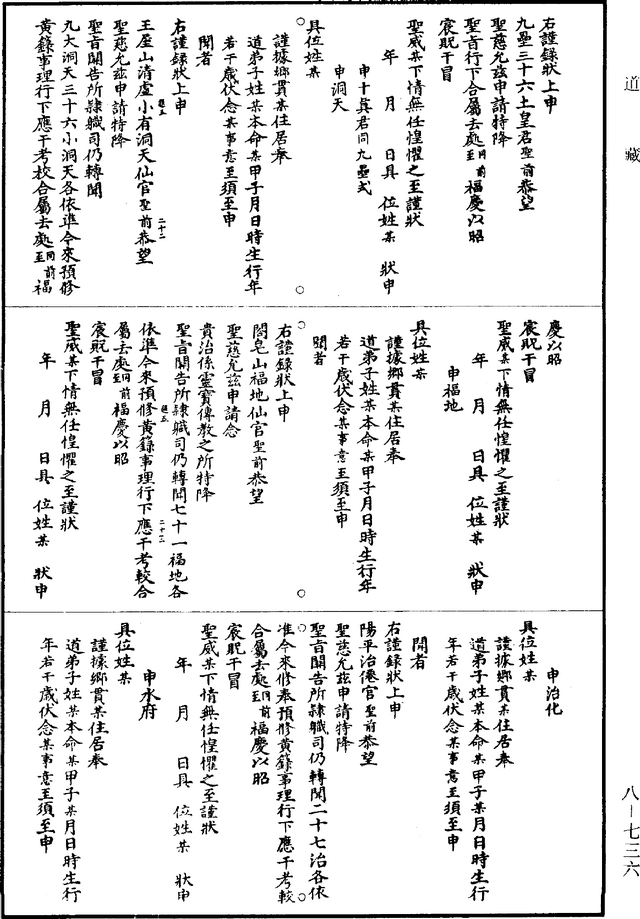 道藏
右謹錄狀上申
九壘三十六土皇君聖前恭望
聖慈允茲申請特降
聖旨行下合屬去處至同前福慶以昭
宸貺干冒
聖威某下情無任惶懼之至謹狀
年　月　日具　位姓某　狀申
申十真君同九壘式
申洞天
具位姓某
謹據鄉貫某住居奉
道弟子姓某本命某甲子月日時生行年
若干歲伏念某事意至須至申
聞者
右謹錄狀上申
王屋山清虛小有洞天仙官聖前恭望
聖慈允茲申請特降
聖旨關告所隸職司仍轉聞
九大洞天三十六小洞天各依準今來預修
黃籙事理行下應干考校合屬去處至同前福
慶以昭
宸貺干冒
聖威某下情無任惶懼之至謹狀
年　月　日具　位姓某　狀申
申福地
具位姓某
謹據鄉貫某住居奉
道弟子姓某本命某甲子月日時生行年
若干歲伏念某事意至須至申
聞者
右謹錄狀上申
閤皂山福地仙官聖前恭望
聖慈允茲申請念
貴治係靈寶傳教之所特降
聖旨關告所隸職司仍轉聞七十一福地各
依準今來預修黃籙事理行下應干考較合
屬去處至同前福慶以昭
宸貺干冒
聖威某下情無任惶懼之至謹狀
年　月　日具　位姓某　狀申
申治化
具位姓某
謹據鄉貫某住居奉
道弟子姓某本命某甲子某月日時生行
年若干歲伏念某事意至須至申
聞者
右謹錄狀上申
陽平治僊官聖前恭望
聖慈允茲申請特降
聖旨關告所隸職司仍轉聞二十七治各依
准今來修奉預修黃籙事理行下應干考較
合屬去處至同前福慶以昭
宸貺干冒
聖威某下情無任惶懼之至謹狀
年　月　日具　位姓某　狀申
申水府
具位姓某
謹據鄉貫某住居奉
道弟子姓某本命某甲子某月日時生行
年若干歲伏念某事意至須至申
八－七三六